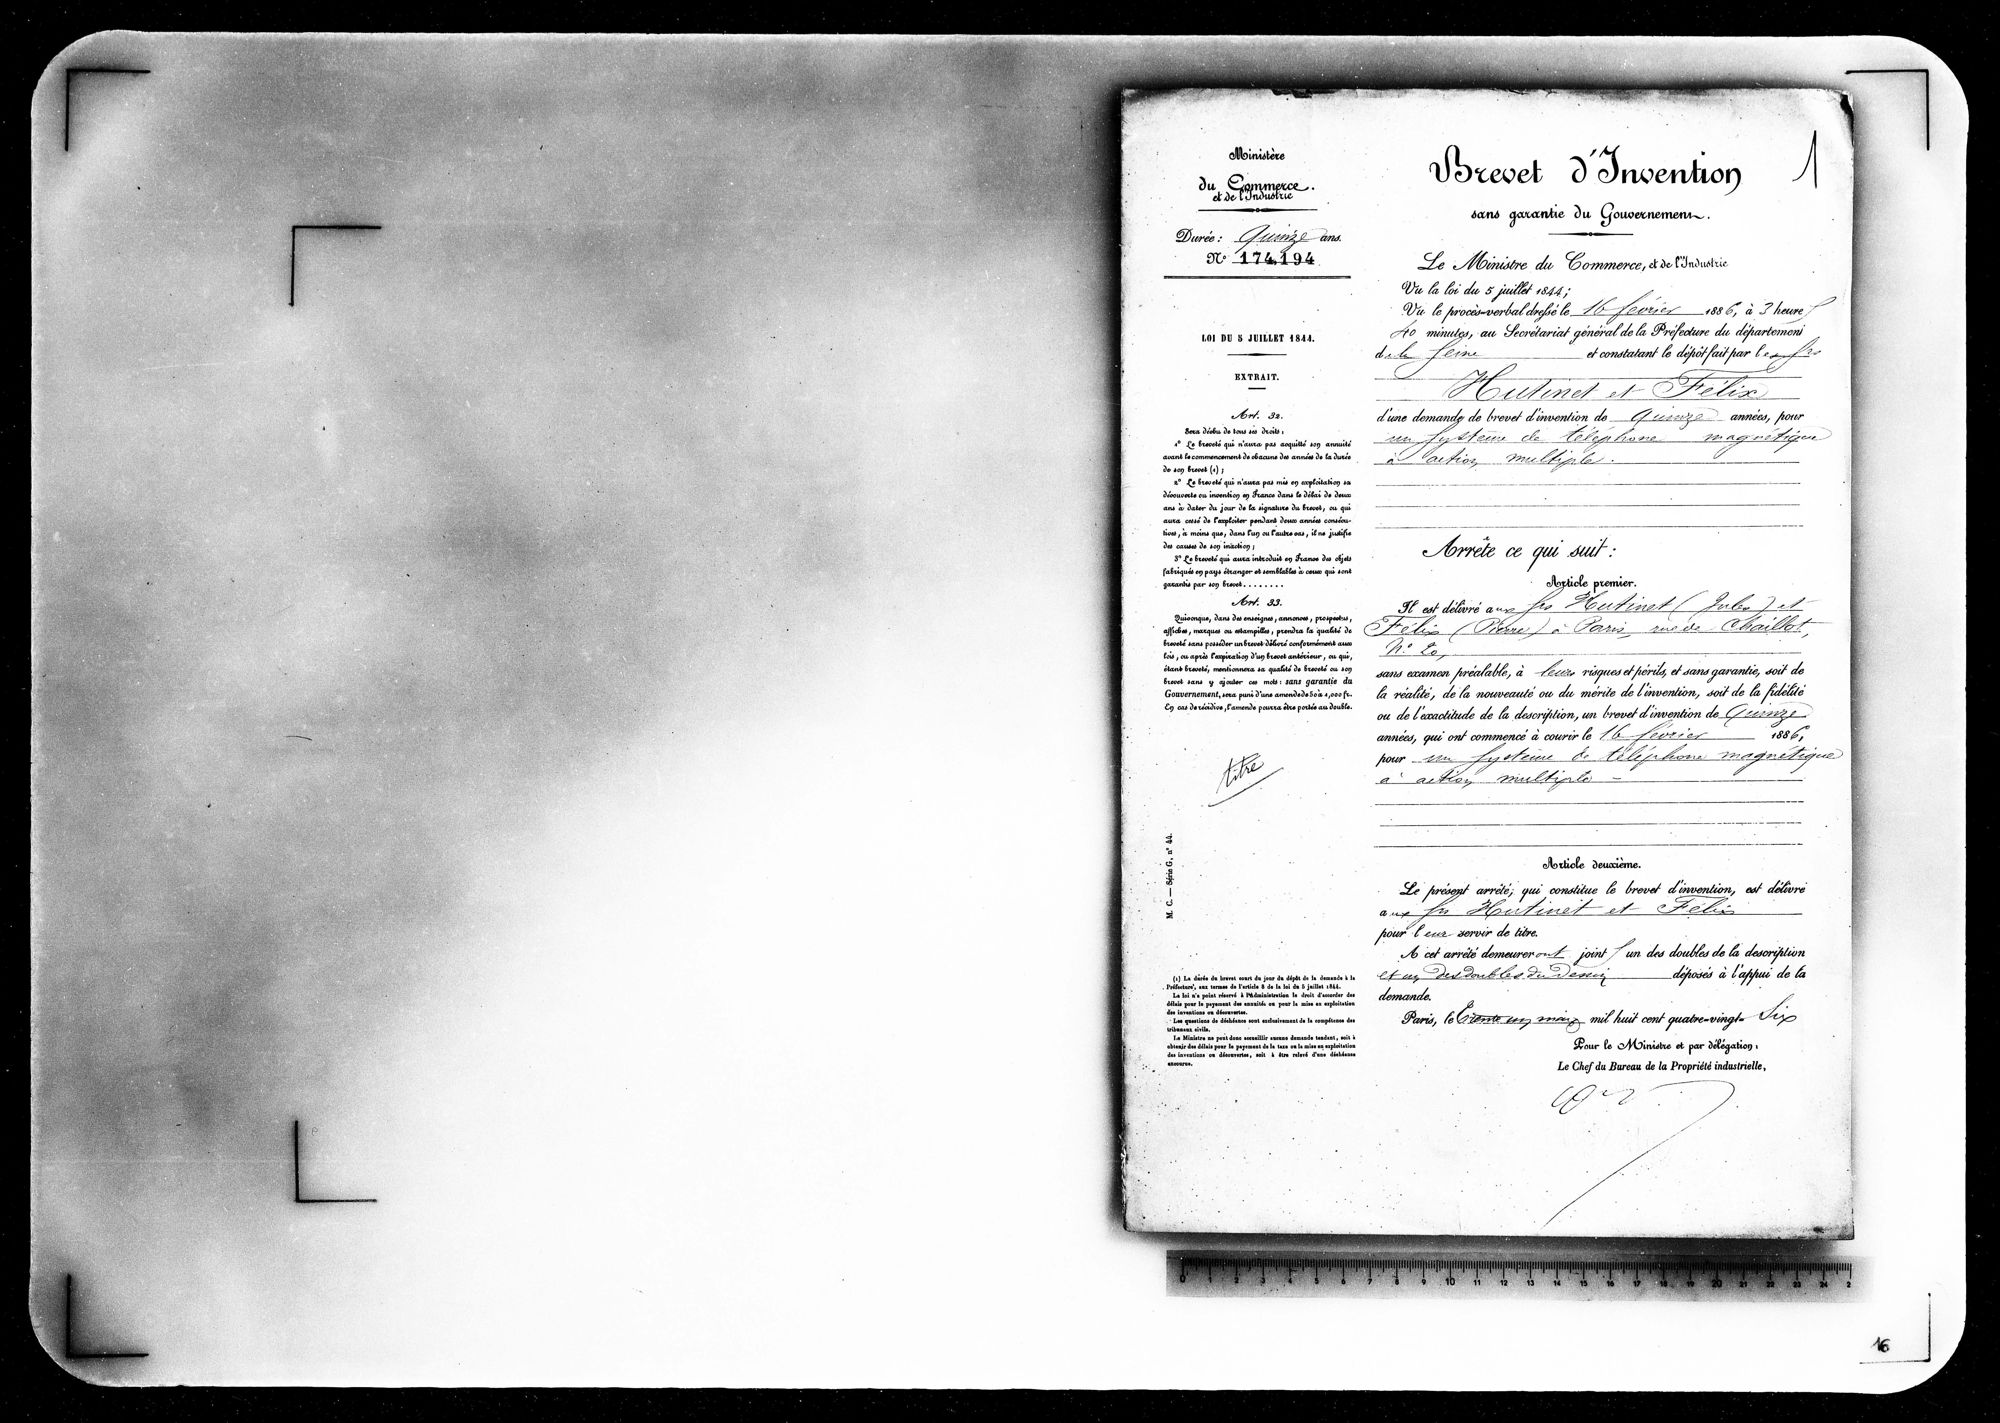 Ministère
du Commerce.
et de l'Industrie
Durée : Quinze ans.
N° 174,194
LOI DU 5 JUILLET 1844.
EXTRAIT.
Art. 32.
Sera déchu de tous ses droits :
1° Le breveté qui n'aura pas acquitté son annuité
avant le commencement de chacune des années de la durée
de son brevet (1) ;
2° Le breveté qui n'aura pas mis en exploitation sa
découverte ou invention en France dans le délai de deux
ans à dater du jour de la signature du brevet, ou qui
aura cessé de l'exploiter pendant deux années consécu-
tives, à moins que, dans l'un ou l'autre cas, il ne justifie
des causes de son inaction ;
3° Le breveté qui aura introduit en France des objets
fabriqués en pays étranger et semblables à ceux qui sont
garantis par son brevet........
Art. 33.
Quiconque, dans des enseignes, annonces, prospectus,
affiches, marques ou estampilles, prendra la qualité de
breveté sans posséder un brevet délivré conformément aux
lois, ou après l'expiration d'un brevet antérieur, ou qui,
étant breveté, mentionnera sa qualité de breveté ou son
brevet sans y ajouter ces mots : sans garantie du
Gouvernement, sera puni d'une amende de 50 à 1,000 fr.
En cas de récidive, l'amende pourra être portée au double.
titre
M. C. — Série G, n° 44.
(1) La durée du brevet court du jour du dépôt de la demande à la
Préfecture, aux termes de l'article 8 de la loi du 5 juillet 1844.
La loi n'a point réservé à l'Administration le droit d'accorder des
délais pour le payement des annuités ou pour la mise en exploitation
des inventions ou découvertes.
Les questions de déchéance sont exclusivement de la compétence des
tribunaux civils.
Le Ministre ne peut donc accueillir aucune demande tendant, soit à
obtenir des délais pour le payement de la taxe ou la mise en exploitation
des inventions ou découvertes, soit à être relevé d'une déchéance
encourue.
1
Brevet d'Invention
sans garantie du Gouvernement.
Le Ministre du Commerce, et de l'Industrie
Vu la loi du 5 juillet 1844 ;
Vu le procès-verbal dressé le 16 février 1886, à 3 heures
40 minutes, au Secrétariat général de la Préfecture du département
de la Seine et constatant le dépôt fait par les Srs
Hutinet et Félix
d'une demande de brevet d'invention de Quinze années, pour
un système de téléphone magnétique
à action multiple.
Arrête ce qui suit :
Article premier.
Il est délivré aux Srs Hutinet (Jules) et
Félix (Pierre) à Paris, rue de Chaillot,
N° 20,
sans examen préalable, à leurs risques et périls, et sans garantie, soit de
la réalité, de la nouveauté ou du mérite de l'invention, soit de la fidélité
ou de l'exactitude de la description, un brevet d'invention de Quinze
années, qui ont commencé à courir le 16 février 1886,
pour un système de téléphone magnétique
à action multiple -
Article deuxième.
Le présent arrêté, qui constitue le brevet d'invention, est délivré
aux Srs Hutinet et Félix
pour leur servir de titre.
A cet arrêté demeureront joints un des doubles de la description
et un des doubles du dessin déposés à l'appui de la
demande.
Paris, le trente un mai mil huit cent quatre-vingt-Six
Pour le Ministre et par délégation :
Le Chef du Bureau de la Propriété industrielle,
0 1 2 3 4 5 6 7 8 9 10 11 12 13 14 15 16 17 18 19 20 21 22 23 24 2
16